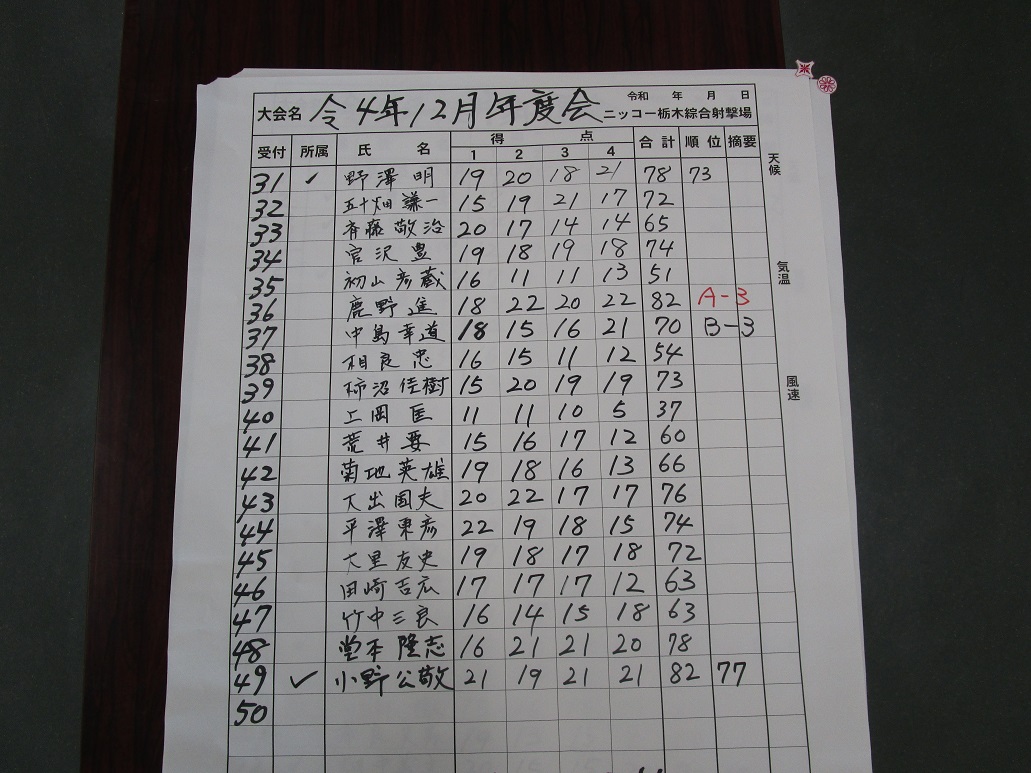 大会名 令4年12月年度会 令和 年 月 日 ニッコー栃木綜合射撃場
受付 所属 氏 名 得 点 合計 順位 摘要
1 2 3 4
31 ✓ 野澤 明 19 20 18 21 78 73
32 五十畑 謙一 15 19 21 17 72
33 斉藤 敬治 20 17 14 14 65
34 宮沢 豊 19 18 19 18 74
35 初山 彦蔵 16 11 11 13 51
36 鹿野 進 18 22 20 22 82 A-3
37 中島 幸道 18 15 16 21 70 B-3
38 相良 忠 16 15 11 12 54
39 柿沼 佳樹 15 20 19 19 73
40 上岡 匡 11 11 10 5 37
41 荒井 要 15 16 17 12 60
42 菊地 英雄 19 18 16 13 66
43 大出 国夫 20 22 17 17 76
44 平澤 東彦 22 19 18 15 74
45 大里 友史 19 18 17 18 72
46 田崎 吉広 17 17 17 12 63
47 竹中 三良 16 14 15 18 63
48 堂本 隆志 16 21 21 20 78
49 ✓ 小野 公敬 21 19 21 21 82 77
50
天候
気温
風速